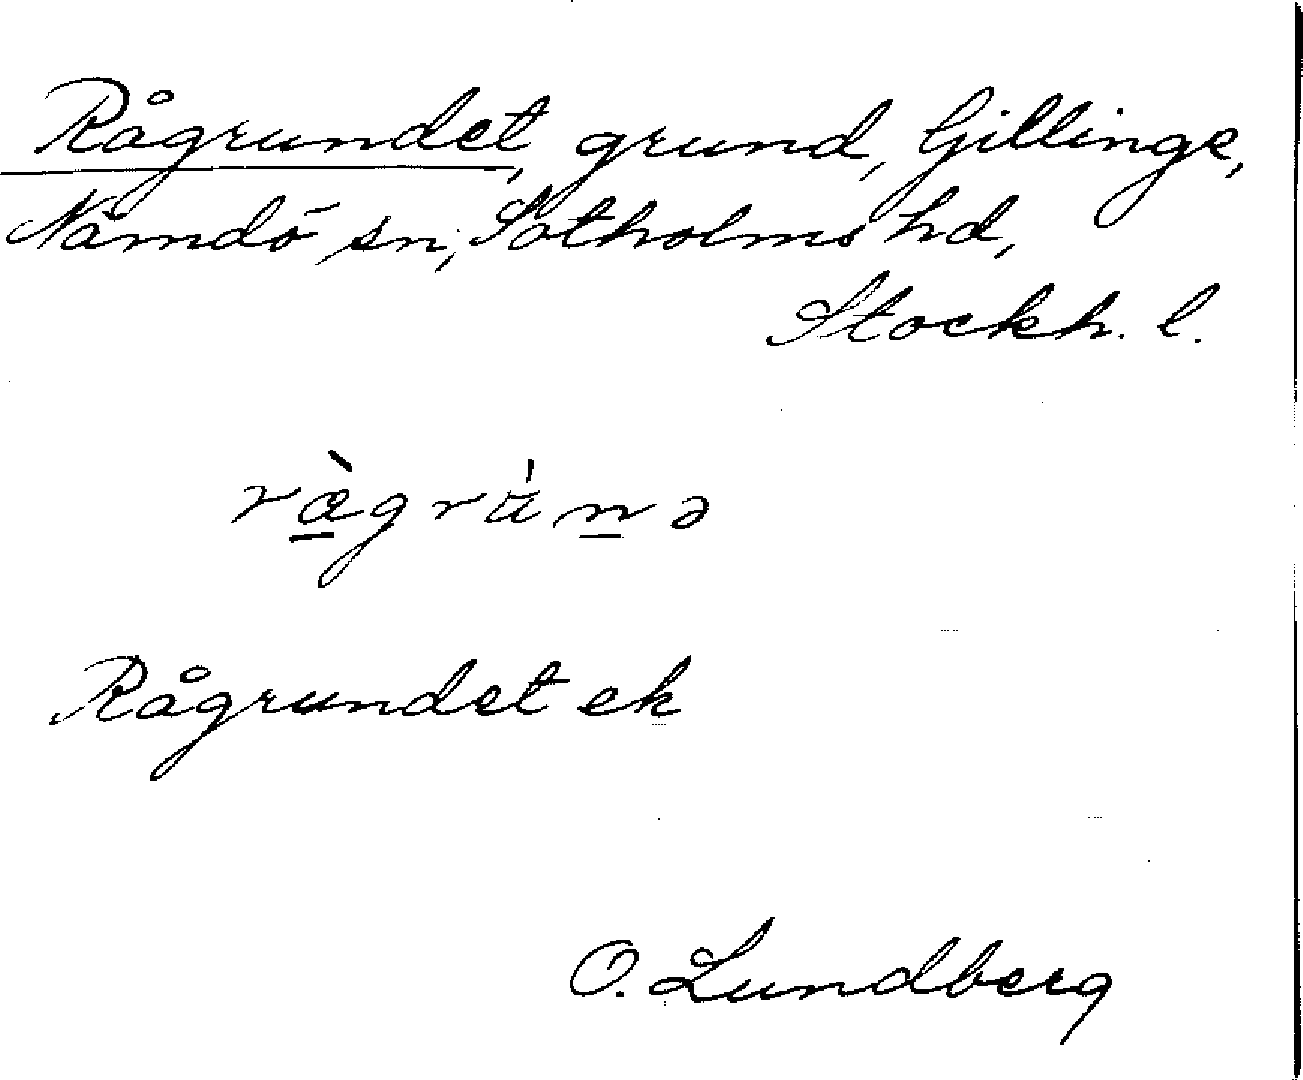 Rågrundet, grund, Gillinge,
Nämdö sn, Sotholms hd,
Stockh. l.
ræ̀grúnə
Rågrundet ek
O. Lundberg